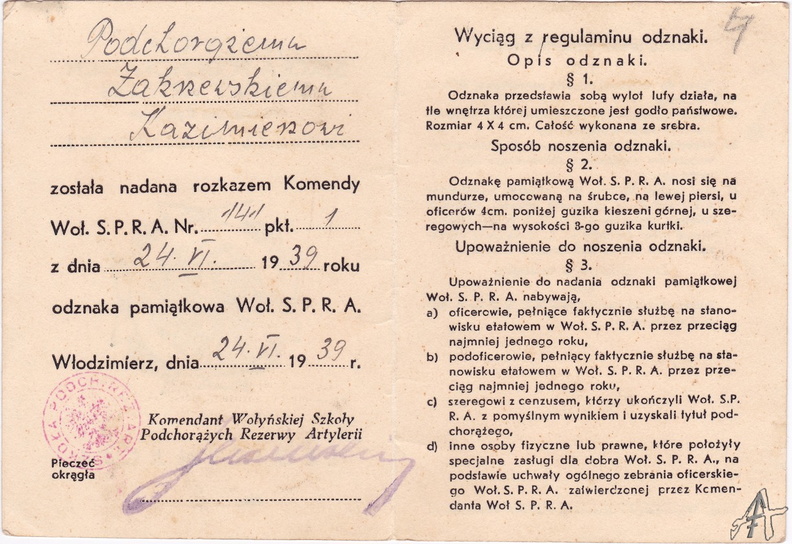 Podchorążemu
Zakrzewskiemu
Kazimierzowi
została nadana rozkazem Komendy
Woł. S. P. R. A. Nr. 141 pkt. 1
z dnia 24. VI. 1939 roku
odznaka pamiątkowa Woł. S. P. R. A.
Włodzimierz, dnia 24. VI. 1939 r.
Komendant Wołyńskiej Szkoły
Podchorążych Rezerwy Artylerii
Pieczęć
okrągła
SZKOŁA PODCH. REZ. ART.
4
Wyciąg z regulaminu odznaki.
Opis odznaki.
§ 1.
Odznaka przedstawia sobą wylot lufy działa, na
tle wnętrza której umieszczone jest godło państwowe.
Rozmiar 4 X 4 cm. Całość wykonana ze srebra.
Sposób noszenia odznaki.
§ 2.
Odznakę pamiątkową Woł. S. P. R. A. nosi się na
mundurze, umocowaną na śrubce, na lewej piersi, u
oficerów 4cm. poniżej guzika kieszeni górnej, u sze-
regowych—na wysokości 3-go guzika kurtki.
Upoważnienie do noszenia odznaki.
§ 3.
Upoważnienie do nadania odznaki pamiątkowej
Woł. S. P. R. A. nabywają,
a) oficerowie, pełniące faktycznie służbę na stano-
wisku etatowem w Woł. S. P. R. A. przez przeciąg
najmniej jednego roku,
b) podoficerowie, pełniący faktycznie służbę na sta-
nowisku etatowem w Woł. S. P. R. A. przez prze-
ciąg najmniej jednego roku,
c) szeregowi z cenzusem, którzy ukończyli Woł. S.P.
R. A. z pomyślnym wynikiem i uzyskali tytuł pod-
chorążego,
d) inne osoby fizyczne lub prawne, które położyły
specjalne zasługi dla dobra Woł. S. P. R. A., na
podstawie uchwały ogólnego zebrania oficerskie-
go Woł. S. P. R. A. zatwierdzonej przez Komen-
danta Woł S. P. R. A.